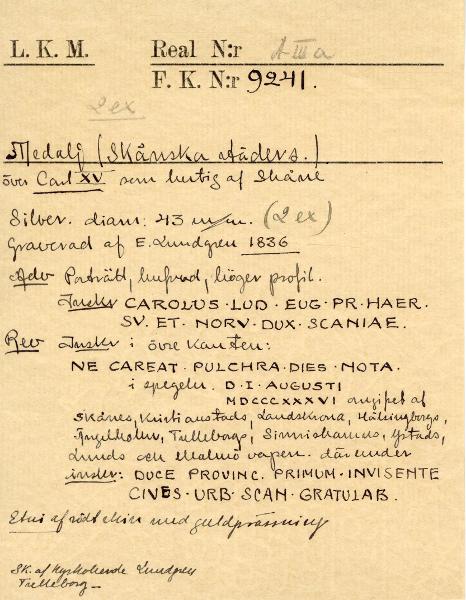 L. K. M. Real N:r A III a
F. K. N:r 9241.
2 ex
Medalj (Skånska städers.)
över Carl XV som hertig af Skåne
Silver. diam: 43 m/m. (2 ex)
Graverad af E. Lundgren 1836
Adv Porträtt, hufvud, höger profil.
Inskr CAROLUS · LUD · EUG · PR · HAER.
SV. ET · NORV · DUX · SCANIAE.
Rev Inskr i övre kanten:
NE CAREAT · PULCHRA · DIES · NOTA.
i spegeln. D · I · AUGUSTI
MDCCCXXXVI omgifvet af
Skånes, Kristianstads, Landskrona, Hälsingborgs,
Ängelholms, Trelleborgs, Simrishamns, Ystads,
Lunds och Malmö vapen. därunder
inskr: DUCE PROVINC. PRIMUM · INVISENTE
CIVES · URB · SCAN · GRATULAB.
Etui af rödt skinn med guldprässning
Sk. af Kyrkoherde Lundgren
Trelleborg